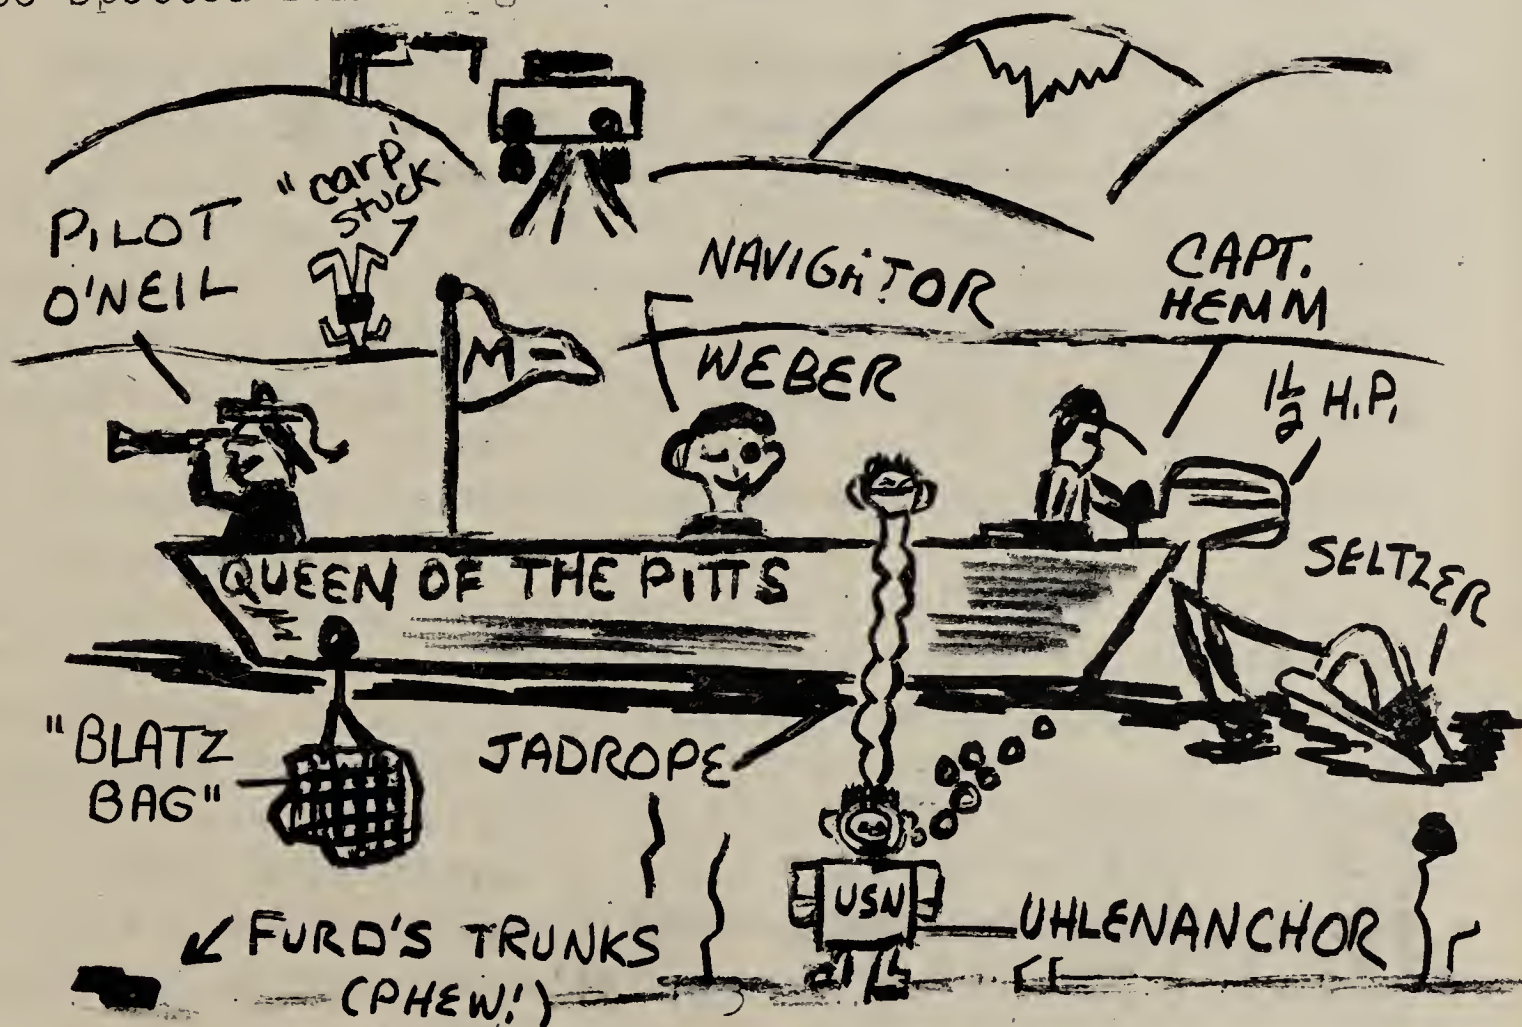 "carp'
stuck
PILOT
O'NEIL
NAVIGATOR
WEBER
CAPT.
HEMM
1 1/2 H.P.
M
QUEEN OF THE PITTS
SELTZER
"BLATZ
BAG"
JADROPE
USN
UHLENANCHOR
FURD'S TRUNKS
(PHEW!)